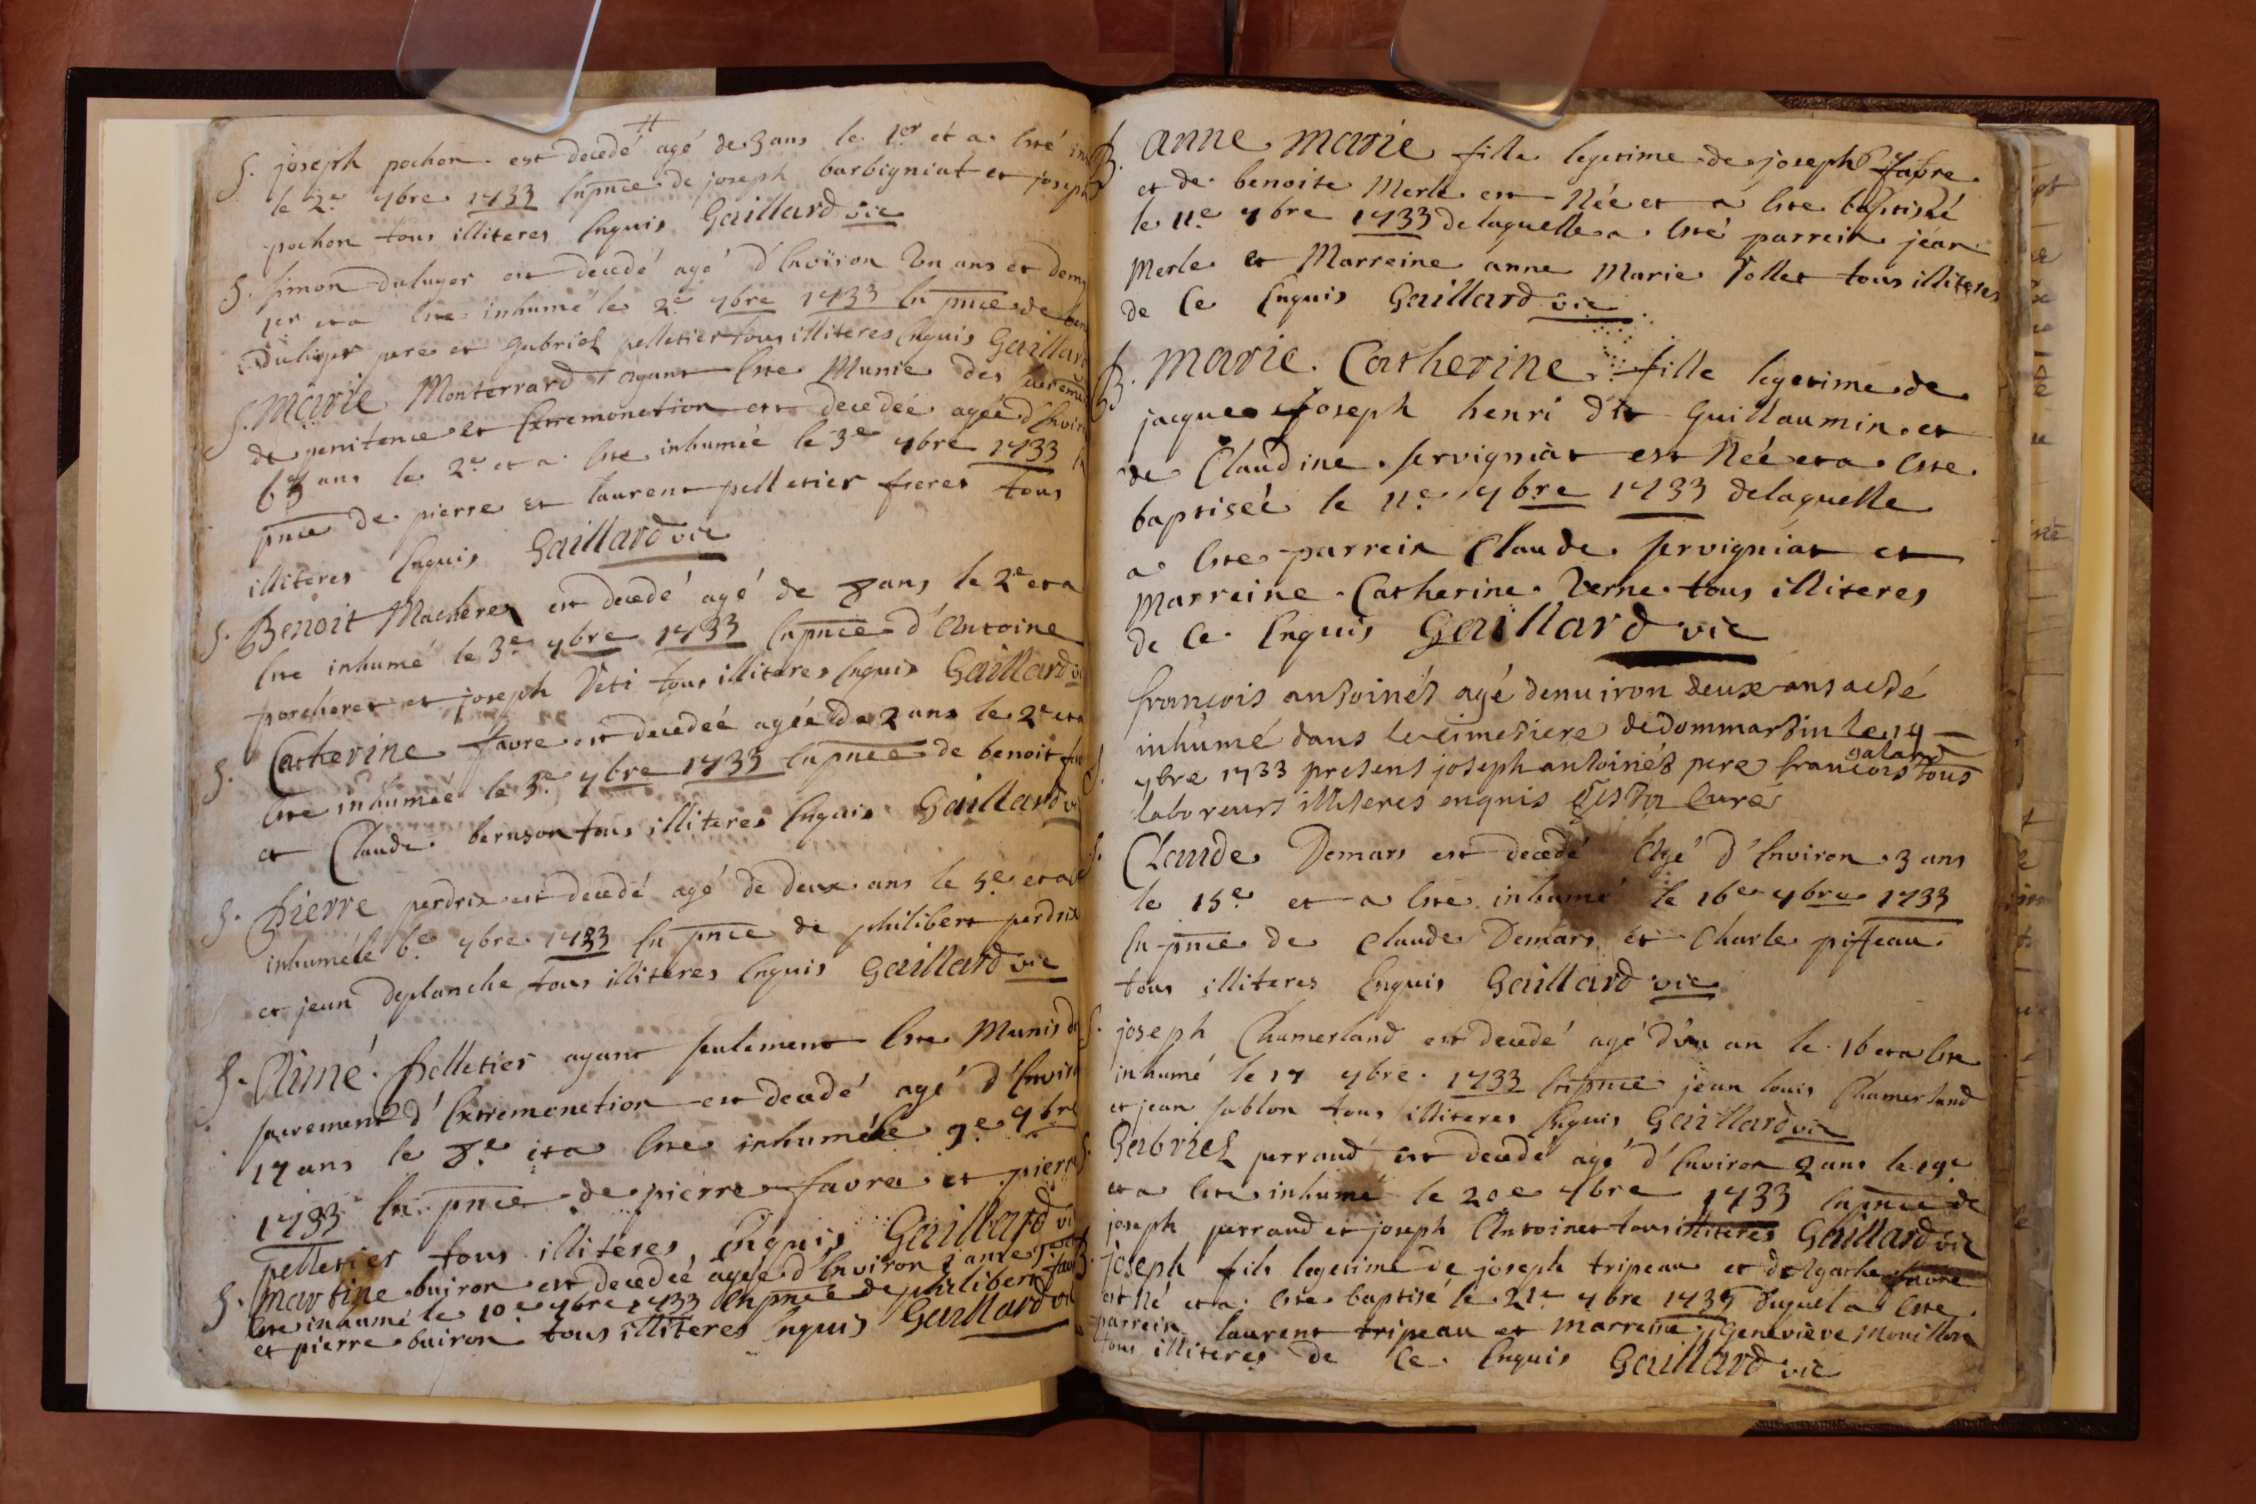 S. joseph pochon est decedé agé de 3 ans le 1er et a esté
le 2e 7bre 1733 En pnce de joseph barbigniat et joseph
pochon tous illiteres Enquis Gaillard vic
S. simon duluyer est decedé agé d'Environ un ans et demy
1er et a este inhumé le 2e 7bre 1733 En pnce de
pere et gabriel pelletier tous illiteres Enquis Gaillard
S. Marie Monterrard ayant este Munie des
de penitence et Extremonction est decedeé ageé d'Envir
le 2e et a este inhumée le 3e 7bre 1733
pnce de pierre et laurent pelletier freres tous
illiteres Enquis Gaillard vic
S. Benoit Macheres est decedé agé de 8 ans le 2e et a
este inhumé le 3e 7bre 1733 En pnce d'Antoine
porcheret et joseph Veti tous illiteres Enquis Gaillard vi
S. Catherine favre est decedeé ageé de 2 ans le 2e et a
este inhumeé le 3e 7bre 1733 En pnce de benoit
et Claude tous illiteres Enquis Gaillard vi
S. Pierre perdrix est decedé agé de deux ans le 5e et a
inhumé le 6e 7bre 1733 En pnce de philibert perdrix
et jean deplanche tous illiteres Enquis Gaillard vic
S. Aimé pelletier ayant seulement este Munis d
sacrement d'Extremonction est decedé agé d'Enviro
17 ans le 8e et a este inhumé le 9e 7bre
1733 En pnce de pierre favre et pierre
pelletier tous illiteres Enquis Gaillard vi
S. Martine buiron est decedeé ageé d'Environ
este inhumé le 10e 7bre 1733 En pnce de philibert
et pierre buiron tous illiteres Enquis Gaillard vic
B. anne Marie fille legetime de joseph favre
et de benoite Merle est Née et a este baptisé
le 11e 7bre 1733 de laquelle a esté parrein jean
Merle et Marreine anne Marie Vollet tous illiteres
de Ce Enquis Gaillard vic
B. Marie Catherine fille legetime de
jacque joseph henri dit Guillaumin et
de Claudine servigniat est Née et a este
baptiseé le 11e 7bre 1733 de laquelle
a este parrein Claude servigniat et
Marreine Catherine Verne tous illiteres
de Ce Enquis Gaillard vic
françois antoinét agé denuiron deux ans a esté
inhumé dans le cimetiere de dommartin le 14
galand
S. 7bre 1733 present joseph antoinét pere francois tous
laboreurs illiteres enquis curé
S. Claude Demars est decedé Agé d'Environ 3 ans
le 15e et a este inhumé le 16e 7bre 1733
En pnce de Claude Demars et Charle piffeau
tous illiteres Enquis Gaillard vic
S. joseph Chamerland est decedé agé d'un an le 16 et a este
inhumé le 17 7bre 1733 En pnce jean louis Chamerland
et jean sablon tous illiteres Enquis Gaillard vic
S. Gabriel perraud est decedé agé d'Environ 2 ans le 19e
et a este inhumé le 20e 7bre 1733 En pnce de
joseph perraud et joseph Antoinet tous illiteres Gaillard vic
B. joseph fils legetime de joseph tripeau et d'Agathe favre
est Né et a este baptisé le 21e 7bre 1733 duquel a este
parrein laurent tripeau et Marreine Genevieve Monillon
tous illiteres de Ce Enquis Gaillard vic